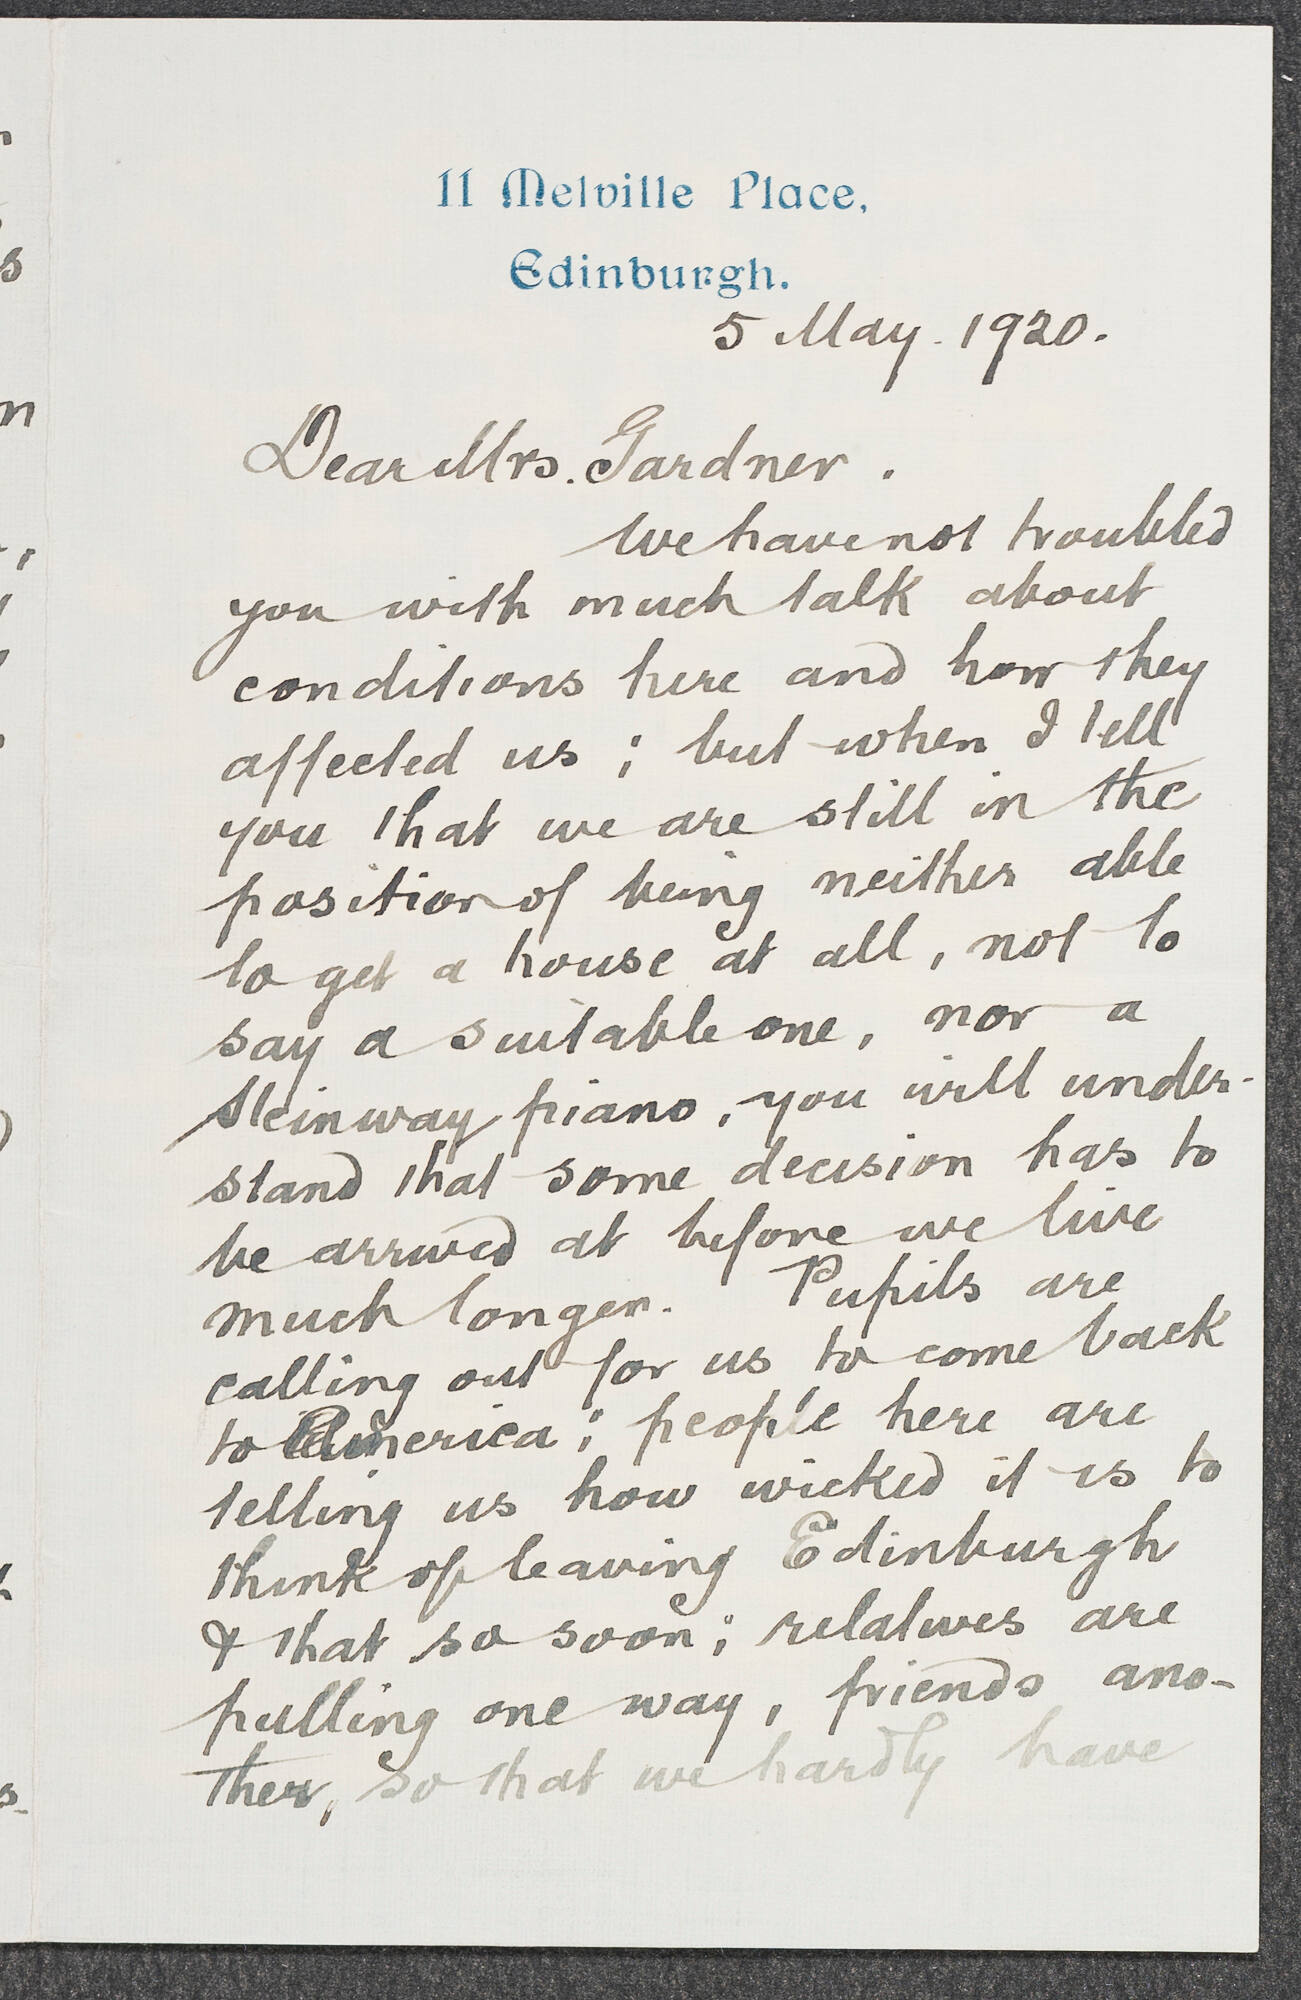 11 Melville Place,
Edinburgh.
5 May. 1920.
Dear Mrs. Gardner.
We have not troubled
you with much talk about
conditions here and how they
affected us; but when I tell
you that we are still in the
position of being neither able
to get a house at all, not to
say a suitable one, nor a
Steinway piano, you will under-
stand that some decision has to
be arrived at before we live
much longer. Pupils are
calling out for us to come back
to America; people here are
telling us how wicked it is to
think of leaving Edinburgh
& that so soon; relatives are
pulling one way, friends ano-
ther, so that we hardly have